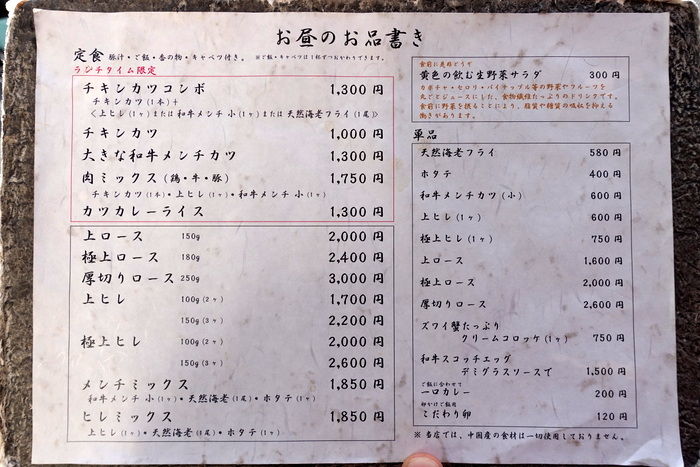 お昼のお品書き
定食 豚汁・ご飯・香の物・キャベツ付き。 ※ご飯・キャベツは1杯ずつおかわりできます。
ランチタイム限定
チキンカツコンボ 1,300円
チキンカツ(1本)+
〈上ヒレ(1ヶ)または和牛メンチ小(1ヶ)または天然海老フライ(1尾)〉
チキンカツ 1,000円
大きな和牛メンチカツ 1,300円
肉ミックス(鶏・牛・豚) 1,750円
チキンカツ(1本)・上ヒレ(1ヶ)・和牛メンチ小(1ヶ)
カツカレーライス 1,300円
上ロース 150g 2,000円
極上ロース 180g 2,400円
厚切りロース 250g 3,000円
上ヒレ 100g(2ヶ) 1,700円
150g(3ヶ) 2,200円
極上ヒレ 100g(2ヶ) 2,000円
150g(3ヶ) 2,600円
メンチミックス 1,850円
和牛メンチ小(1ヶ)・天然海老(1尾)・ホタテ(1ヶ)
ヒレミックス 1,850円
上ヒレ(1ヶ)・天然海老(1尾)・ホタテ(1ヶ)
食前に是非どうぞ
黄色の飲む生野菜サラダ 300円
カボチャ・セロリ・パイナップル等の野菜やフルーツを
丸ごとジュースにした、食物繊維たっぷりのドリンクです。
食前に野菜を摂ることにより、脂質や糖質の吸収を抑える
働きがあります。
単品
天然海老フライ 580円
ホタテ 400円
和牛メンチカツ(小) 600円
上ヒレ(1ヶ) 600円
極上ヒレ(1ヶ) 750円
上ロース 1,600円
極上ロース 2,000円
厚切りロース 2,600円
ズワイ蟹たっぷり
クリームコロッケ(1ヶ) 750円
和牛スコッチエッグ
デミグラスソースで 1,500円
ご飯に合わせて
一口カレー 200円
卵かけご飯用
こだわり卵 120円
※当店では、中国産の食材は一切使用しておりません。